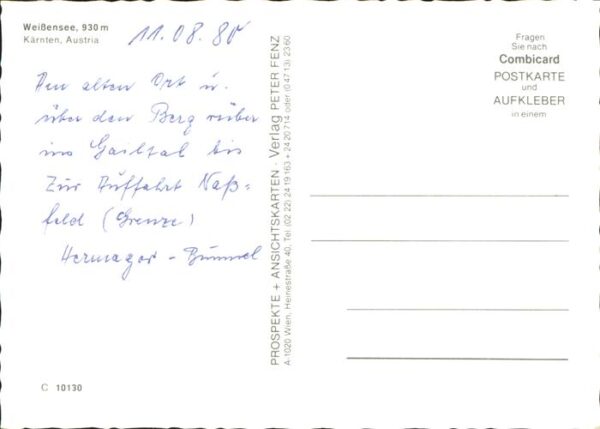 Weißensee, 930 m
Kärnten, Austria
11.08.80
Den alten Ort u.
über den Berg rüber
ins Gailtal bis
zur Auffahrt Naß=
feld (Grenze)
Hermagor - Bummel
C 10130
PROSPEKTE + ANSICHTSKARTEN · Verlag PETER FENZ
A-1020 Wien, Heinestraße 40, Tel. (02 22) 24 19 163 + 24 20 714 oder (0 47 13) 23 60
Fragen
Sie nach
Combicard
POSTKARTE
und
AUFKLEBER
in einem